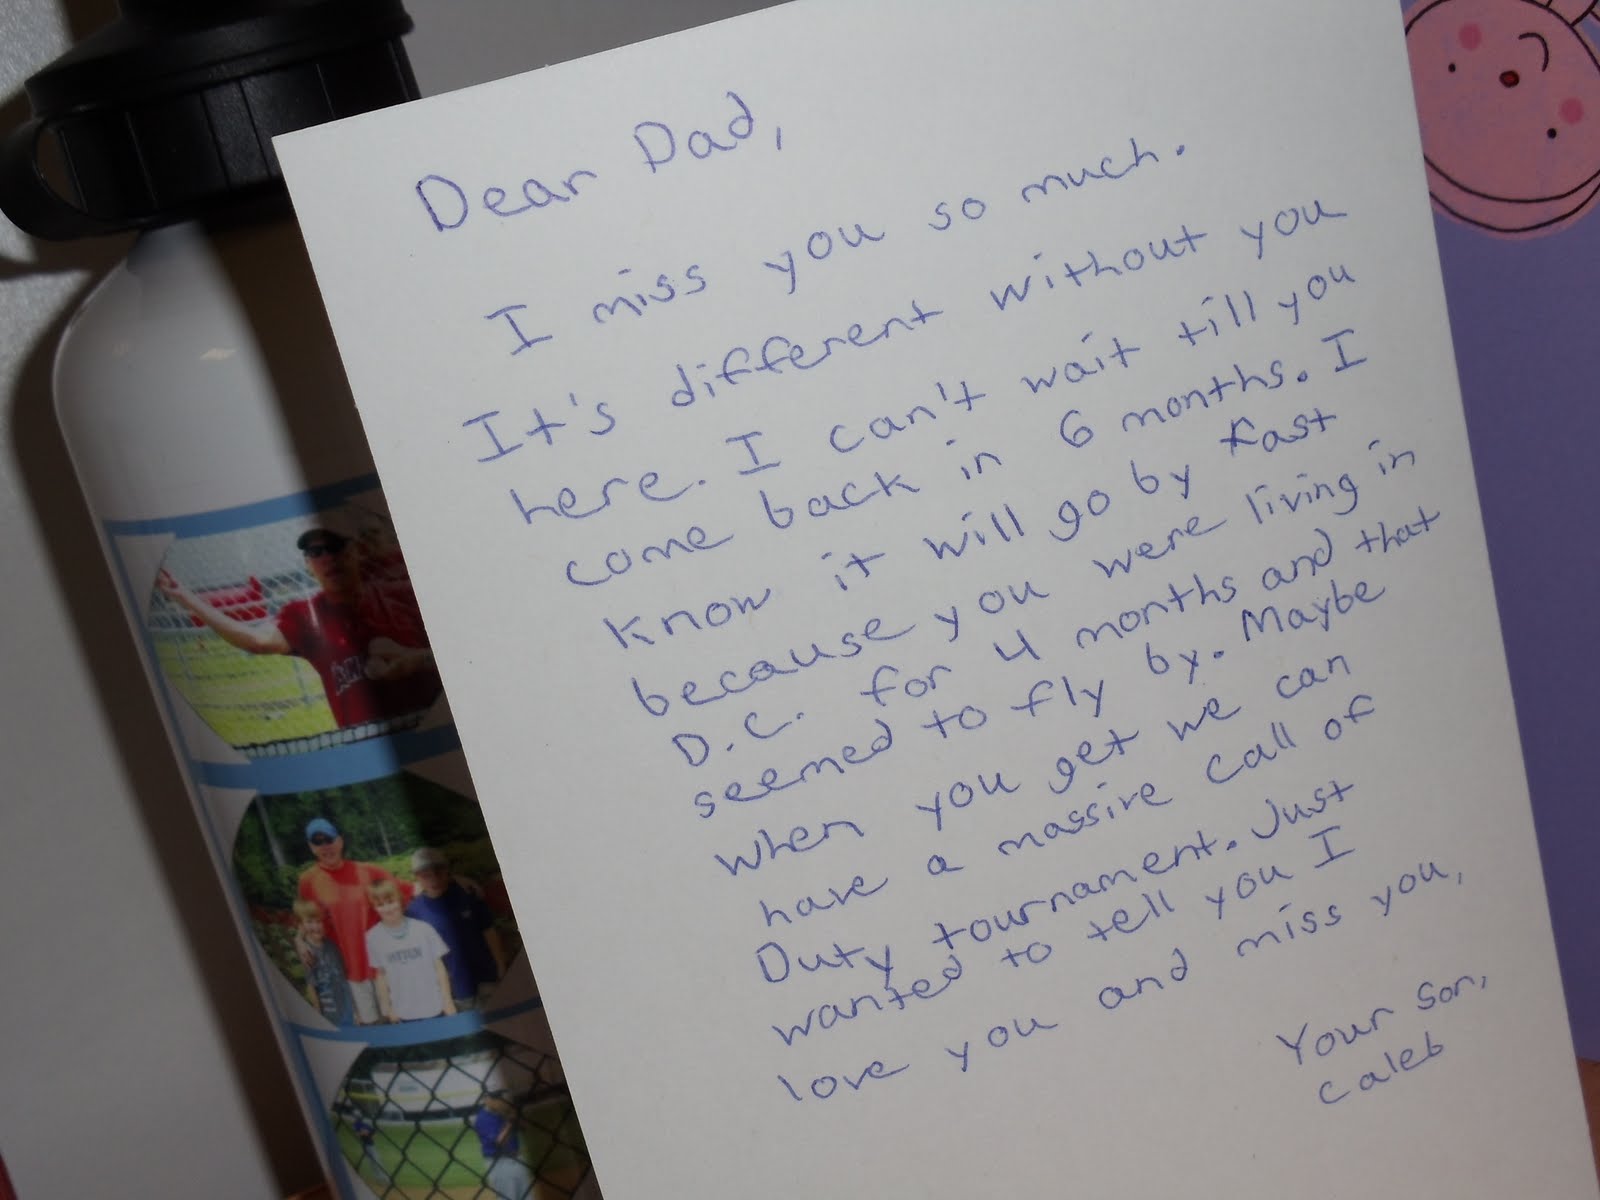 Dear Dad,
I miss you so much.
It's different without you
here. I can't wait till you
come back in 6 months. I
know it will go by fast
because you were living in
D.C. for 4 months and that
seemed to fly by. Maybe
when you get we can
have a massive call of
Duty tournament. Just
wanted to tell you I
love you and miss you,
Your son,
Caleb